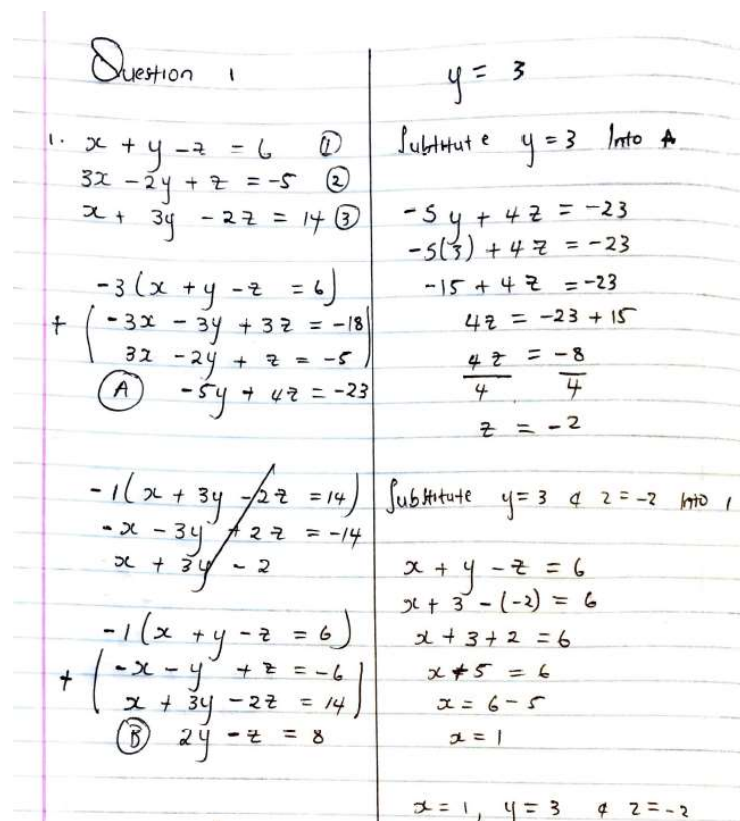 Question 1
1. x + y - z = 6 ①
3x - 2y + z = -5 ②
x + 3y - 2z = 14 ③
-3(x + y - z = 6)
+ ( -3x - 3y + 3z = -18
3x - 2y + z = -5 )
Ⓐ -5y + 4z = -23
-1(x + 3y - 2z = 14)
-x - 3y + 2z = -14
x + 3y - 2
-1(x + y - z = 6)
+ ( -x - y + z = -6
x + 3y - 2z = 14 )
Ⓑ 2y - z = 8
y = 3
Substitute y = 3 Into A
-5y + 4z = -23
-5(3) + 4z = -23
-15 + 4z = -23
4z = -23 + 15
4z = -8
4 4
z = -2
Substitute y = 3 & z = -2 Into 1
x + y - z = 6
x + 3 - (-2) = 6
x + 3 + 2 = 6
x + 5 = 6
x = 6 - 5
x = 1
x = 1, y = 3 & z = -2